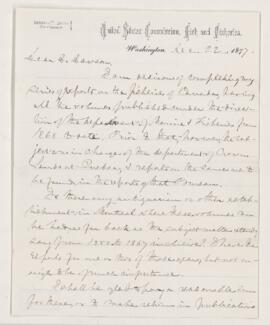 United States Commission, Fish and Fisheries.
Washington, Dec. 22, 1877
Dear Dr. Dawson
I am desirous of completing my
series of reports on the fisheries of Canada, having
all the volumes published under the direc-
tion of the department of Marine & Fisheries from
1868 to date. Prior to that, however, the sub-
ject was in charge of the department of Crown
Lands at Quebec, & reports on the same are to
be found in the reports of that
Is there any antiquarian or other estab-
lishment in Montreal where these volumes can
be had as far back as the subject matter extends,
say from to 1867 inclusive? I have the
Reports for one or two of these years, but not en-
ough to be of much importance.
I shall be glad to pay a reasonable sum
for these, or to make return in publications